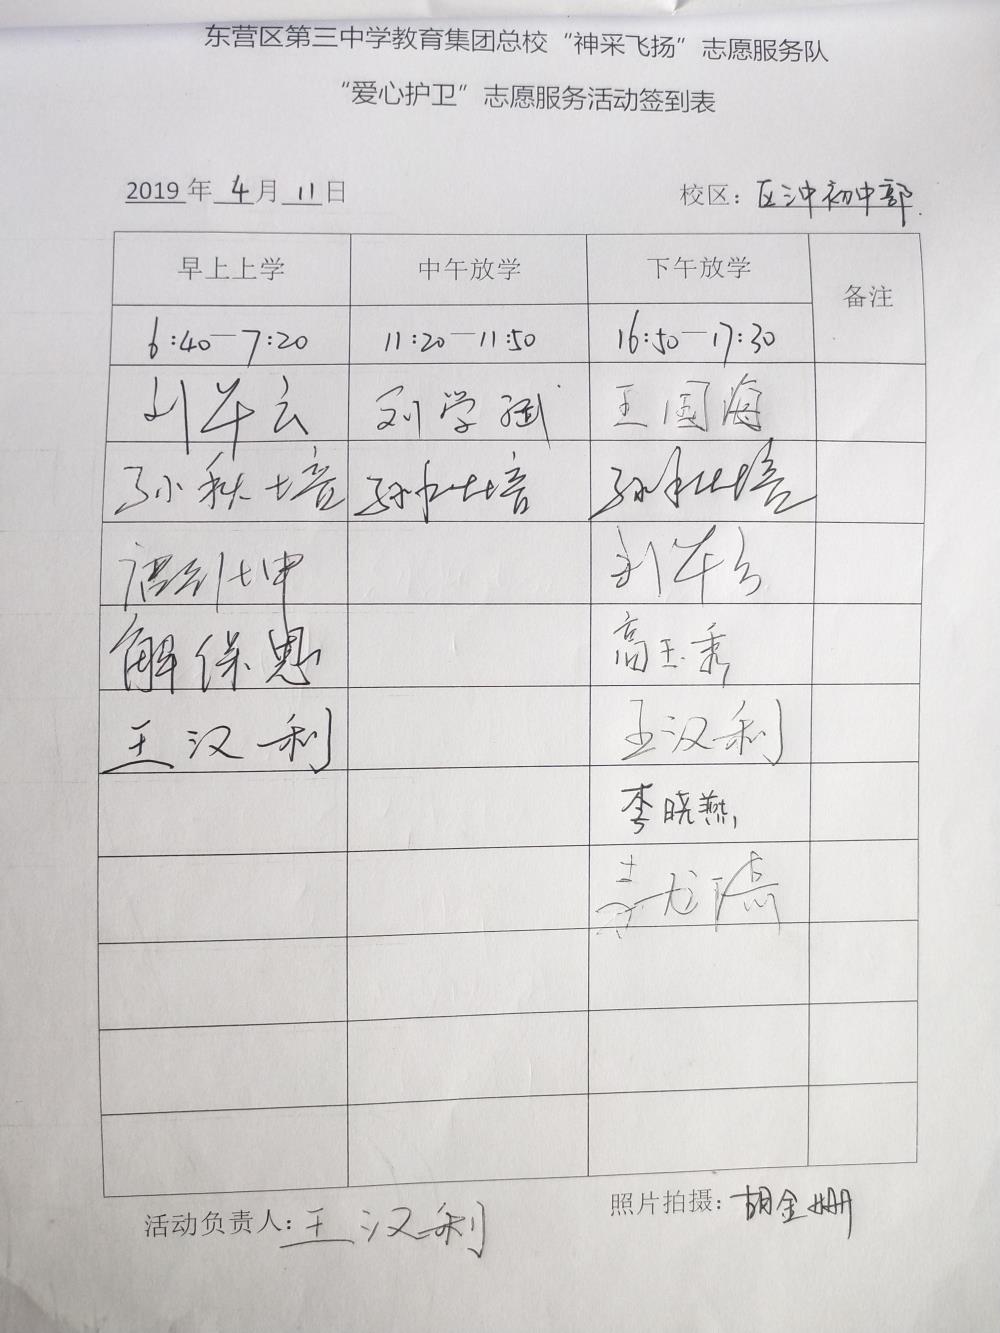 东营区第三中学教育集团总校“神采飞扬”志愿服务队
“爱心护卫”志愿服务活动签到表
2019年4月11日 校区：区直初中部
早上上学 中午放学 下午放学 备注
6:40—7:20 11:20—11:50 16:50—17:30
刘华云 刘学斌 王国海
孙秋培 孙秋培 孙秋培
刘华云
解保恩 高玉秀
王汉利 王汉利
李晓燕
活动负责人：王汉利 照片拍摄：胡金姗